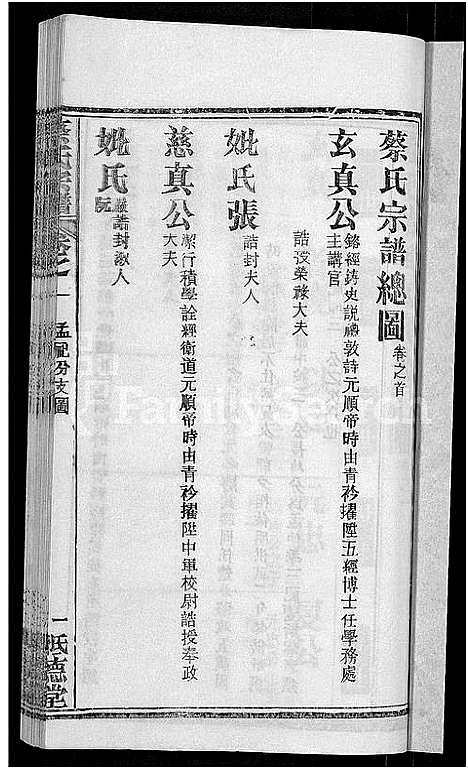 蔡氏宗譜總圖 卷之首
玄真公 鎔經鑄史説禮敦詩元順帝時由青衿擢陞五經博士任學務處
主講官
誥授榮祿大夫
妣氏張 誥封夫人
慈真公 潔行積學詮經衛道元順帝時由青衿擢陞中軍校尉誥授奉政
大夫
妣氏阮 誥封淑人
蔡氏宗譜 卷之一 孟麗分支圖 一 祇德堂
FamilySearch